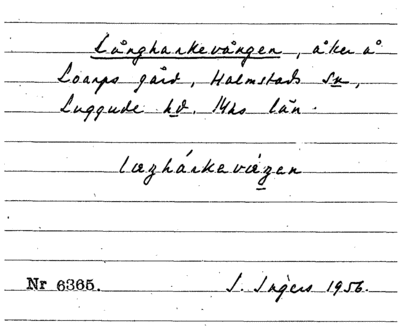 Långharkevången, åker å
Loarps gård, Halmstads sn,
Luggude hd. Mhs län.
læŋhárkevæŋen
Nr 6365.
I. Ingers 1956.